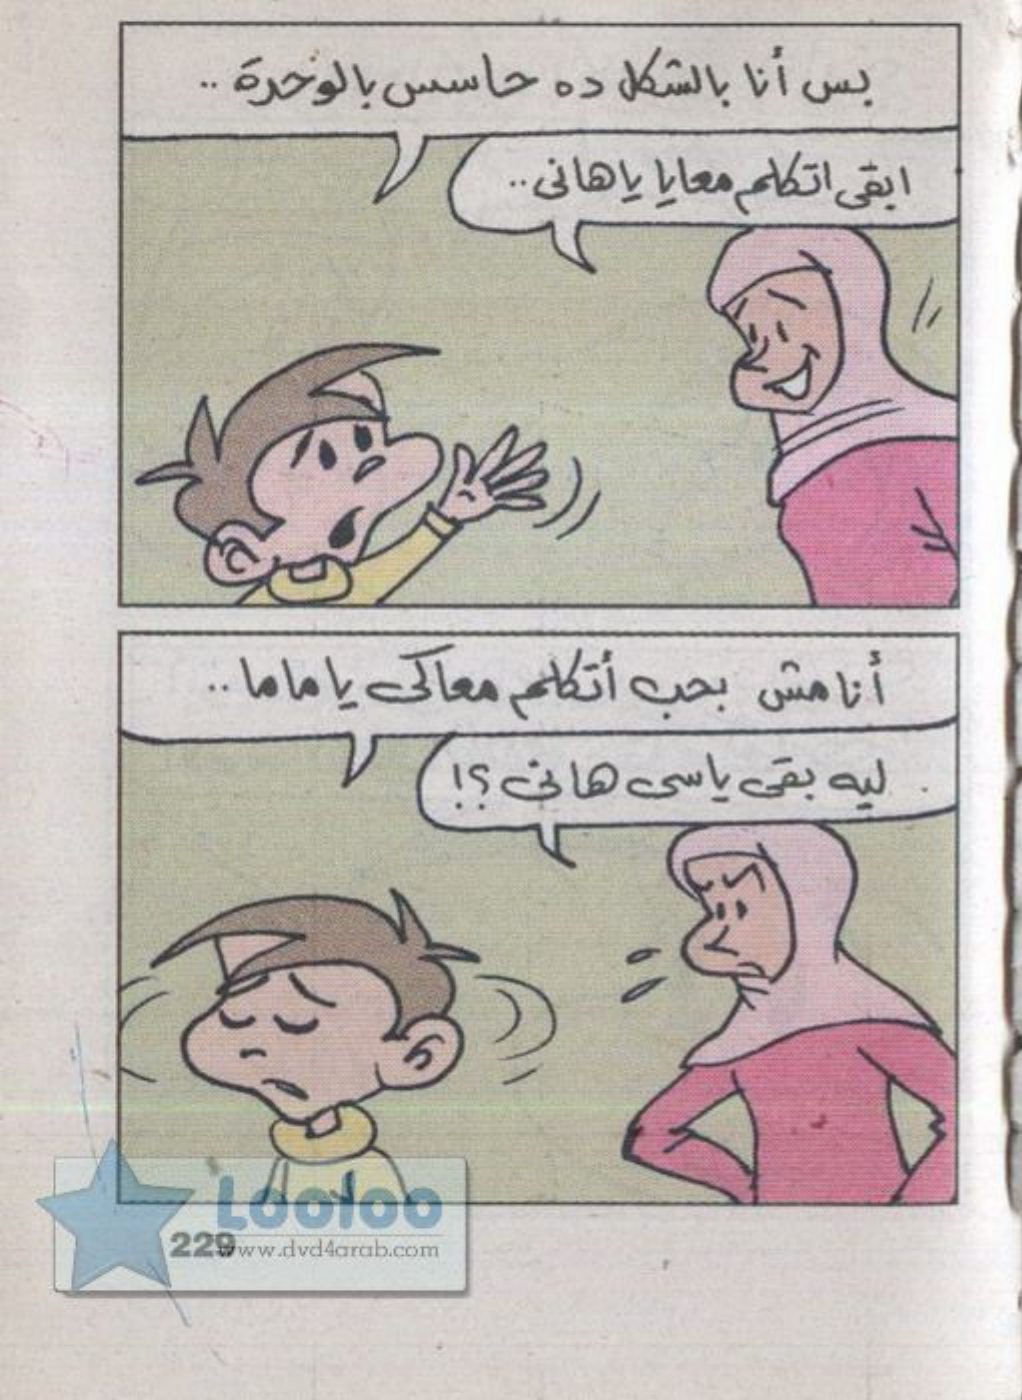 بس أنا بالشكل ده حاسس بالوحدة ..
ابقى اتكلم معايا يا هانى ..
أنا مش بحب أتكلم معاكى يا ماما ..
ليه بقى يا سى هانى ؟!
Looloo
229
www.dvd4arab.com